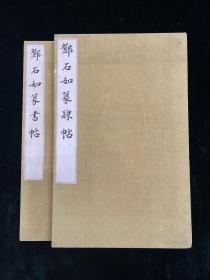 鄧石如篆隸帖
鄧石如篆書帖